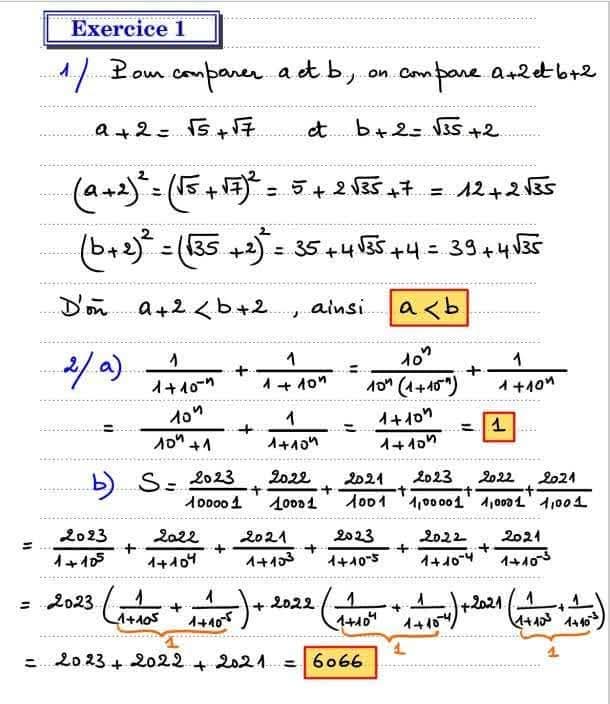 Exercice 1
1/ Pour comparer a et b, on compare a+2 et b+2
a+2 = √5 + √7 et b+2 = √35 + 2
(a+2)² = (√5 + √7)² = 5 + 2√35 + 7 = 12 + 2√35
(b+2)² = (√35 + 2)² = 35 + 4√35 + 4 = 39 + 4√35
D'où a+2 < b+2 , ainsi a < b
2/ a) 1/(1+10⁻ⁿ) + 1/(1+10ⁿ) = 10ⁿ/(10ⁿ(1+10⁻ⁿ)) + 1/(1+10ⁿ)
= 10ⁿ/(10ⁿ+1) + 1/(1+10ⁿ) = (1+10ⁿ)/(1+10ⁿ) = 1
b) S = 2023/100001 + 2022/10001 + 2021/1001 + 2023/1,00001 + 2022/1,0001 + 2021/1,001
= 2023/(1+10⁵) + 2022/(1+10⁴) + 2021/(1+10³) + 2023/(1+10⁻⁵) + 2022/(1+10⁻⁴) + 2021/(1+10⁻³)
= 2023 (1/(1+10⁵) + 1/(1+10⁻⁵)) + 2022 (1/(1+10⁴) + 1/(1+10⁻⁴)) + 2021 (1/(1+10³) + 1/(1+10⁻³))
1 1 1
= 2023 + 2022 + 2021 = 6066